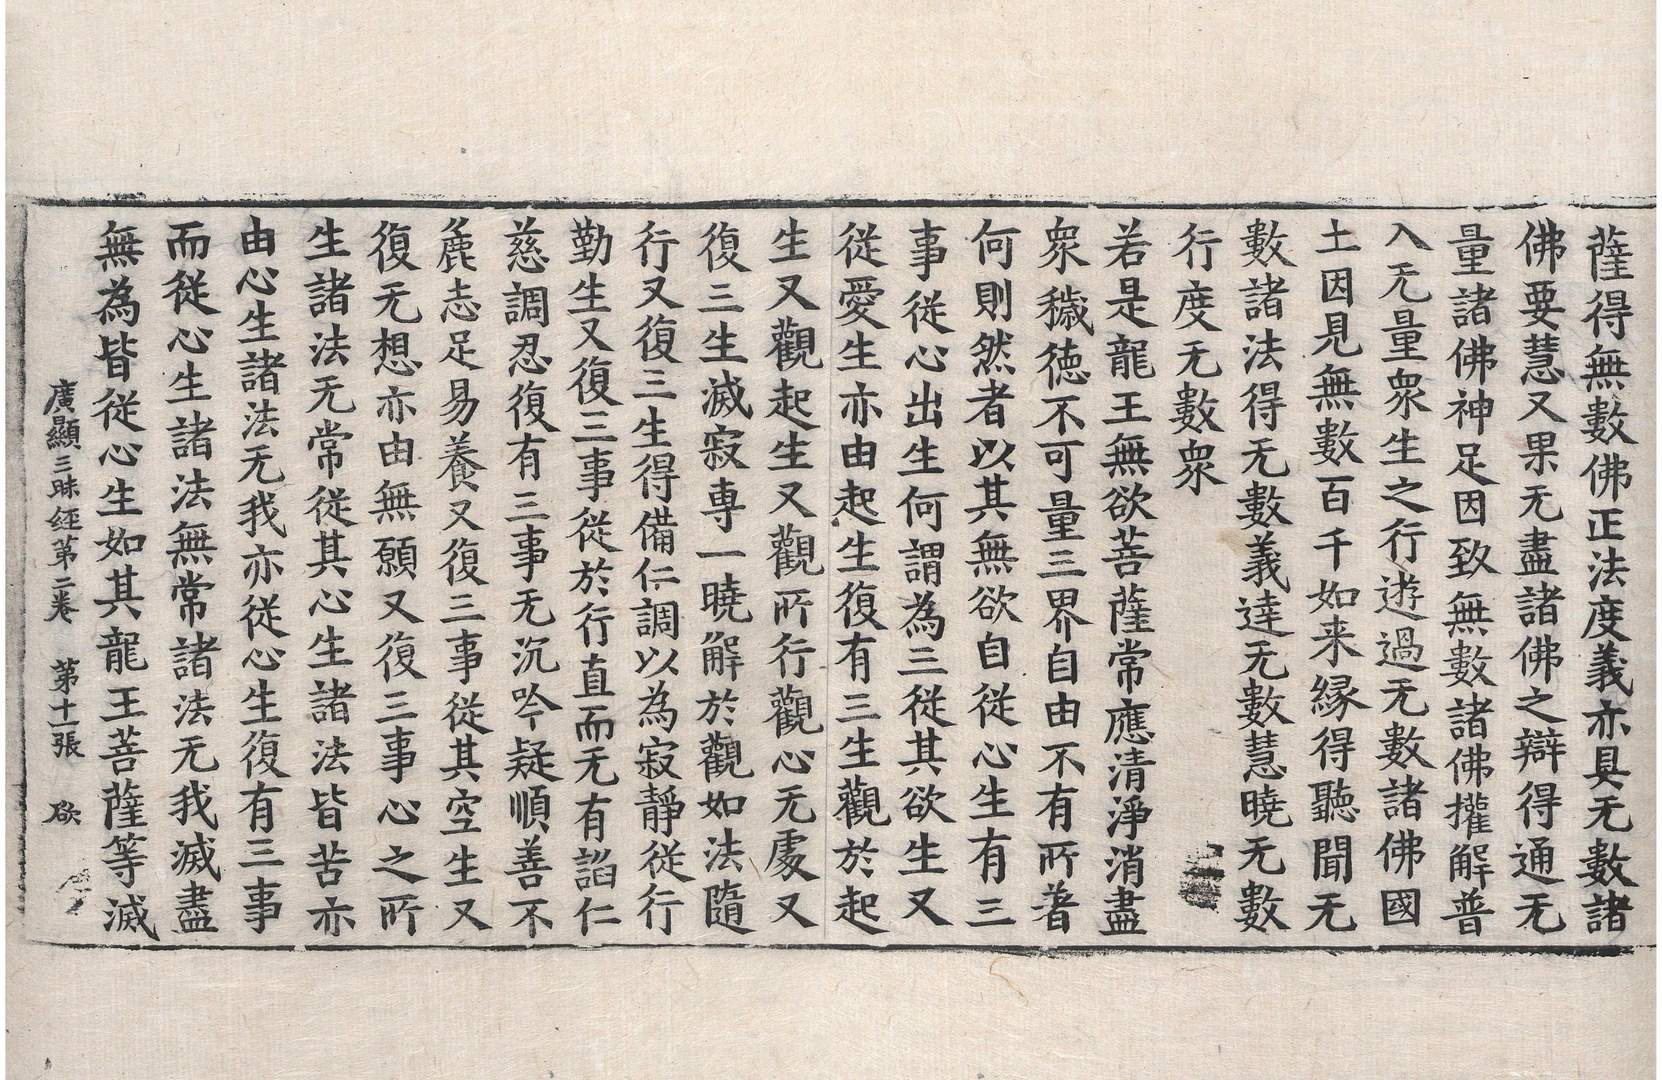 薩得無數佛正法度義亦具无數諸
佛要慧又果无盡諸佛之辯得通无
量諸佛神足因致無數諸佛㩲解普
入无量衆生之行遊過无數諸佛國
土因見無數百千如来縁得聽聞无
數諸法得无數義達无數慧曉无數
行度无數衆
若是龍王無欲菩薩常應清淨消盡
衆穢徳不可量三界自由不有所著
何則然者以其無欲自從心生有三
事從心出生何謂為三從其欲生又
從愛生亦由起生復有三生觀於起
生又觀起生又觀所行觀心无處又
復三生滅寂専一曉解於觀如法隨
行又復三生得備仁調以為寂靜從行
勤生又復三事從於行直而无有諂仁
慈調忍復有三事无沉吟疑順善不
麁志足易養又復三事從其空生又
復无想亦由無願又復三事心之所
生諸法无常從其心生諸法皆苦亦
由心生諸法无我亦從心生復有三事
而從心生諸法無常諸法无我滅盡
無為皆從心生如其龍王菩薩等滅
廣顯三昧經第二卷 第十一張 欲